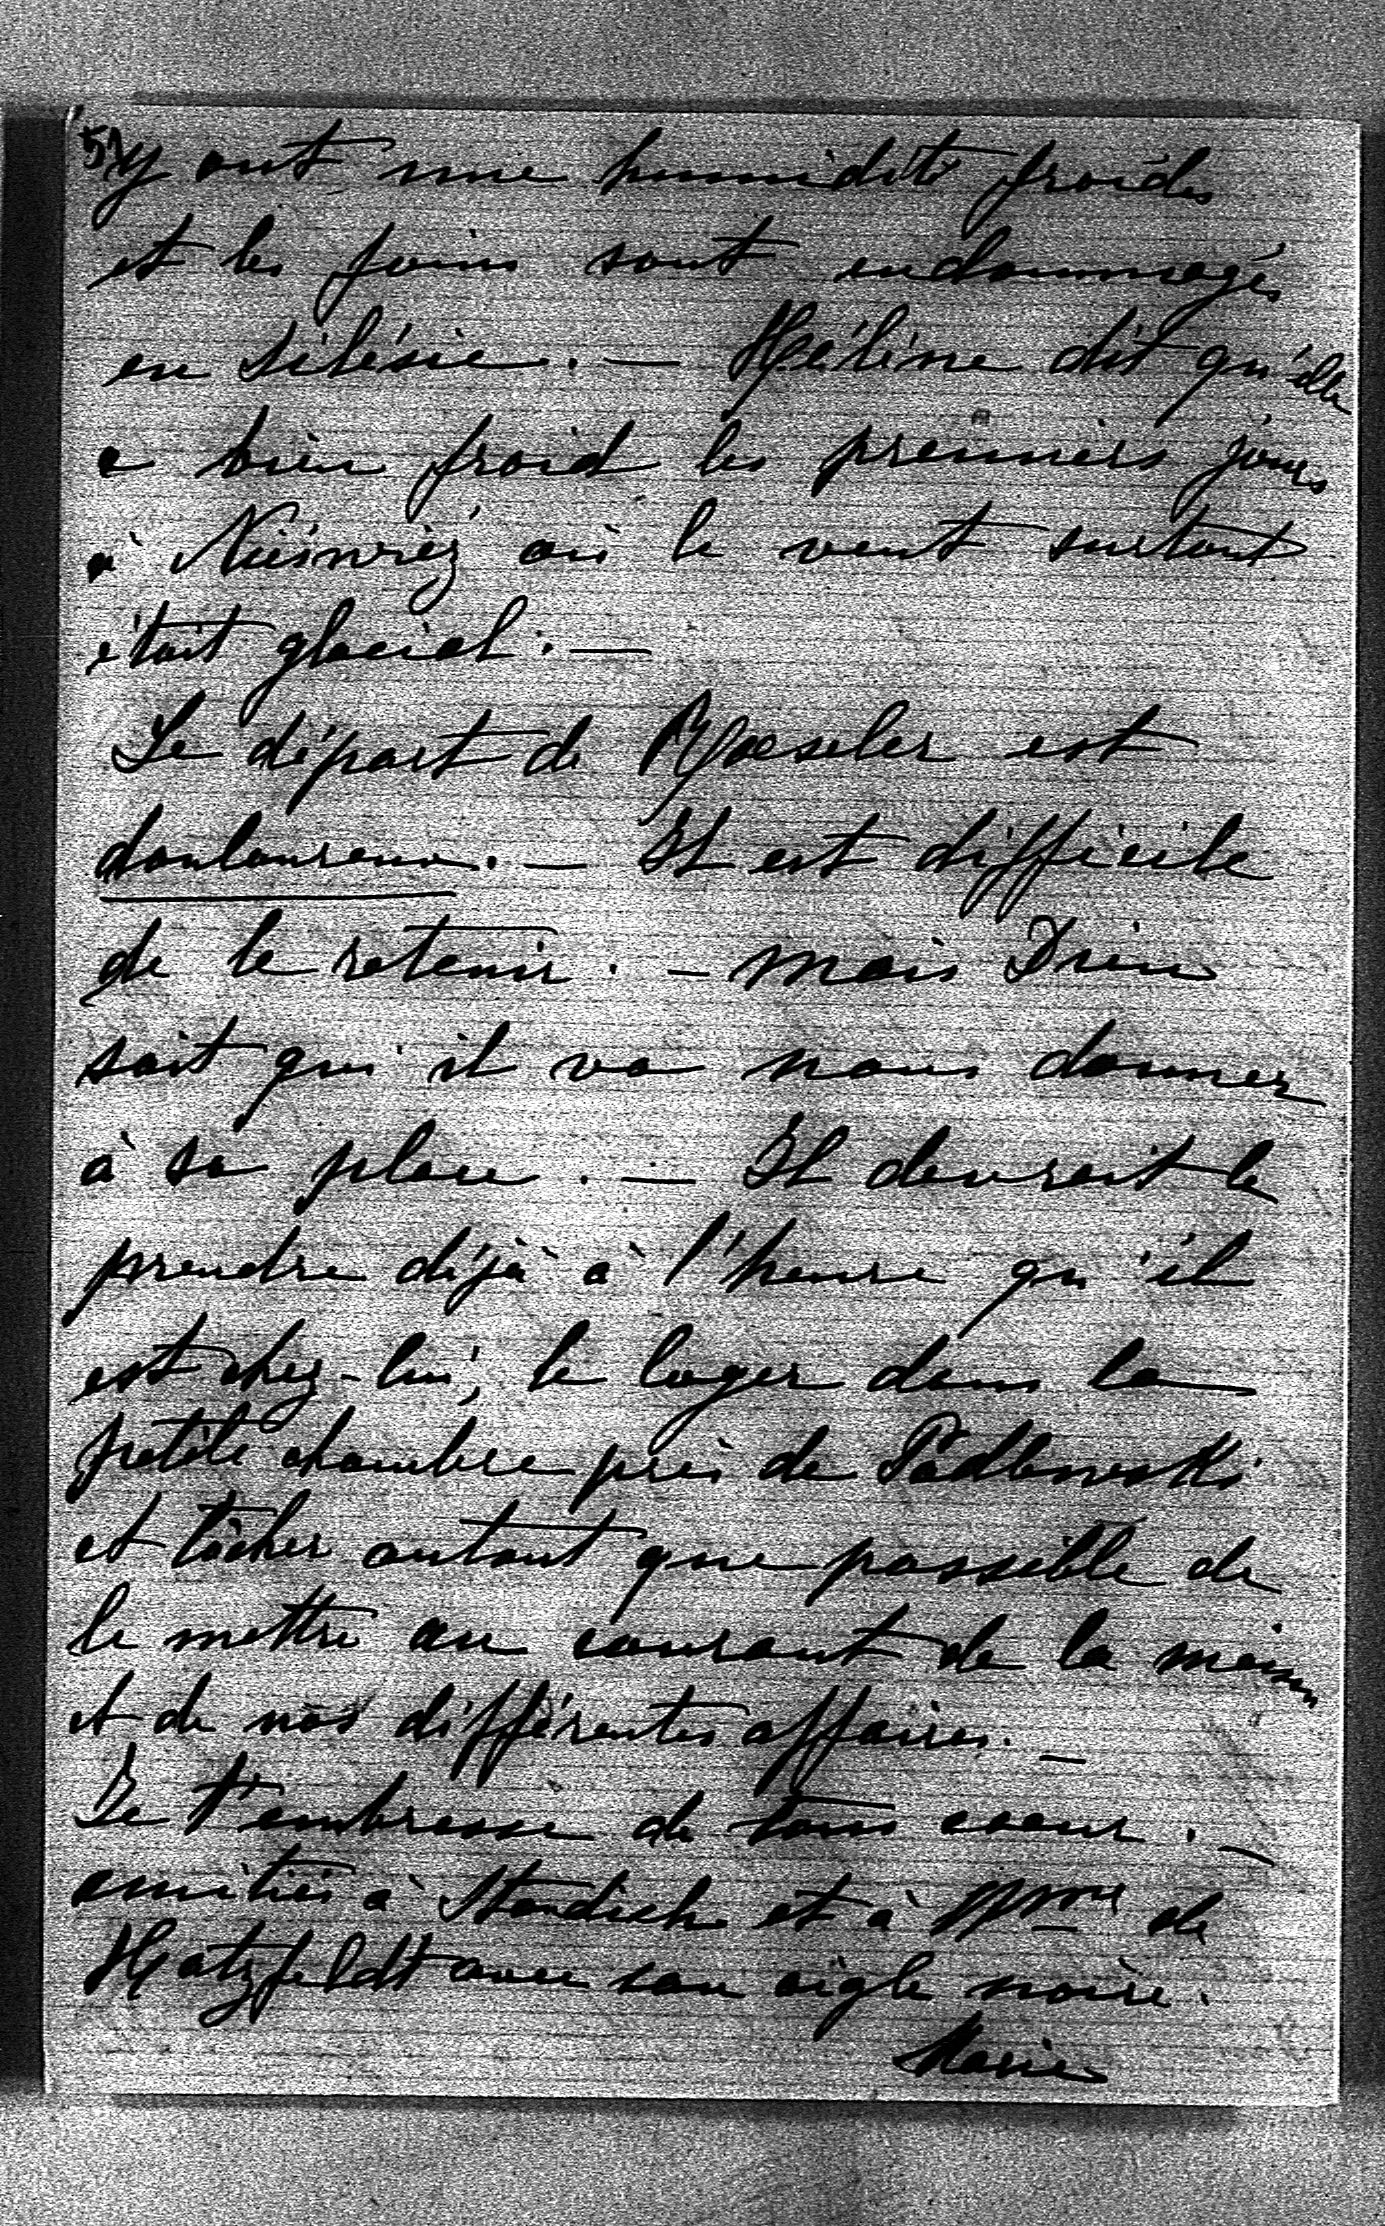 5) y ont une humidité froide
et les foins sont endommagés
en Silésie. — Hélène dit qu'elle
a bien froid les premiers jours
à Nieświéż où le vent surtout
était glacial. —
Le départ de Haeseler est
douloureux. — Il est difficile
de le retenir. — mais Dieu
sait qui il va nous donner
à sa place. — Il devrait le
prendre déjà à l'heure qu'il
est chez-lui, le loger dans la
petite chambre près de Podlewski
et tâcher autant que possible de
le mettre au courant de la maison
et de nos différentes affaires. —
Je t'embrasse de tout coeur. —
amitiés à Standish et à Mme de
Hatzfeldt avec son aigle noire.
Marie